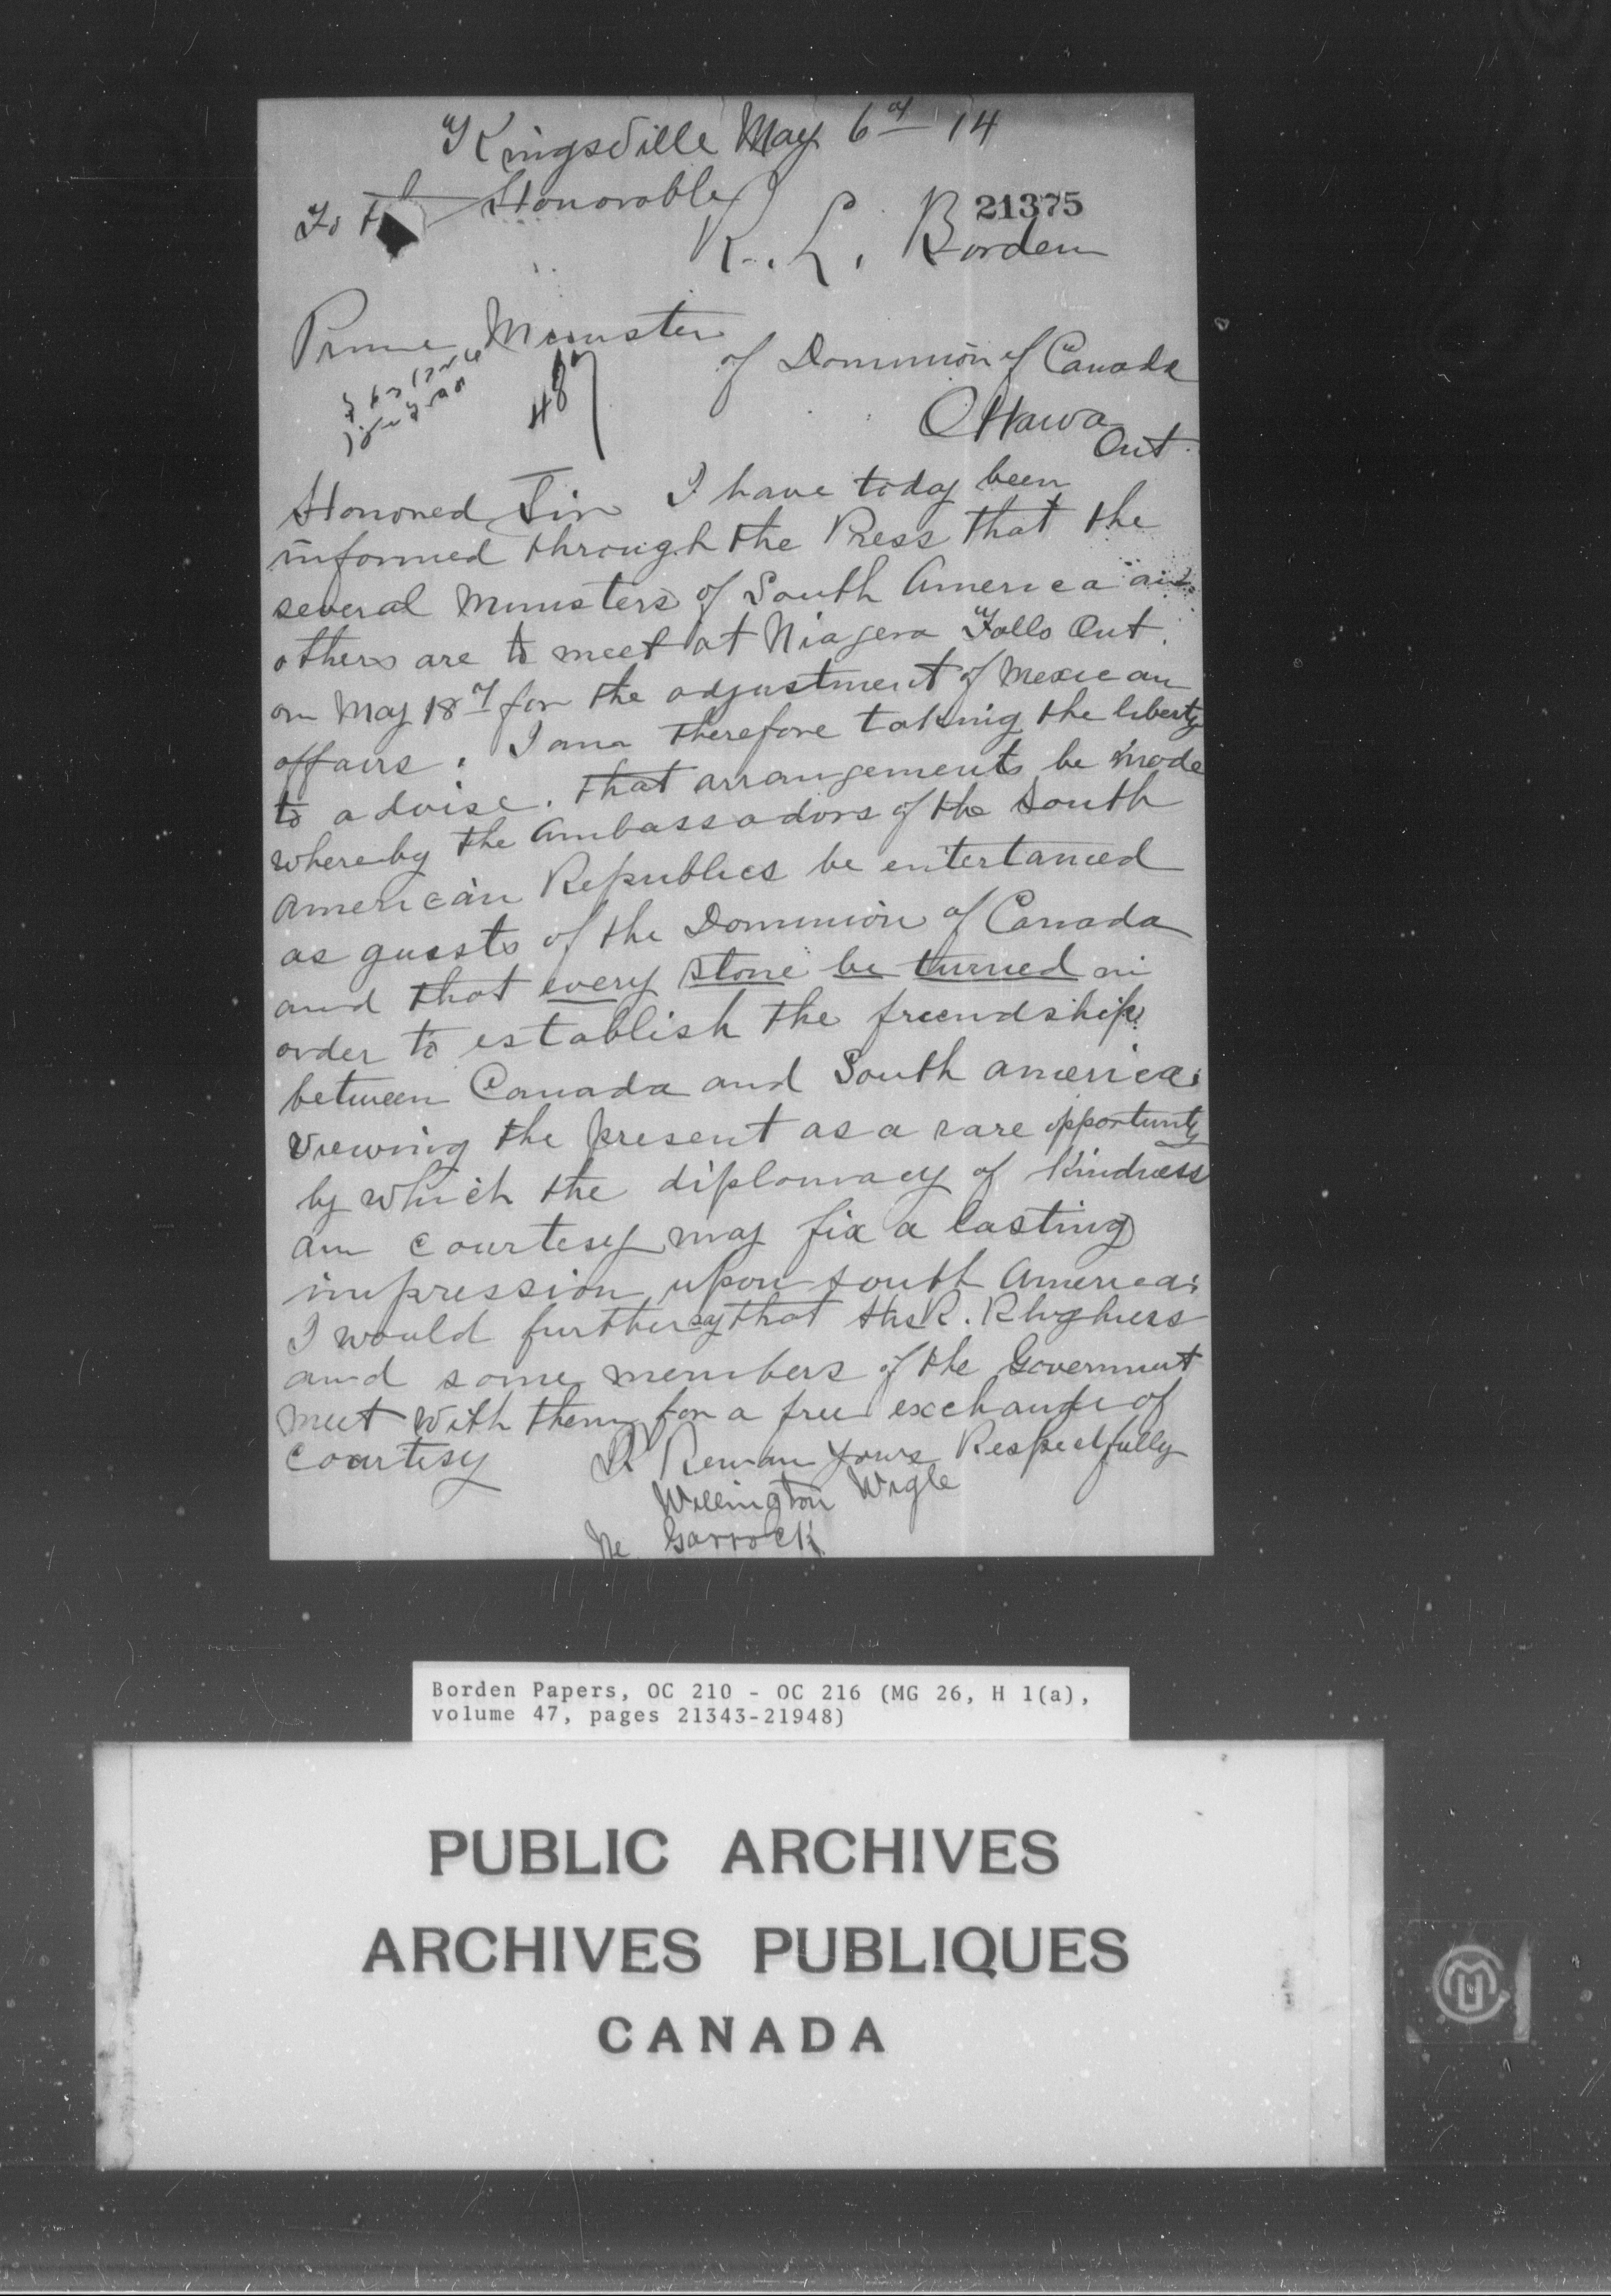 Kingsville May 6th 14
21375
To the Honorable
R. L. Borden
Prime Minister
of Dominion of Canada
487
Ottawa
Ont
Honored Sir I have today been
informed through the Press that the
several Ministers of South America and
others are to meet at Niagera Falls Ont.
on May 18th for the adjustment of Mexican
affairs. I am therefore taking the liberty
to advise. that arrangements be made
whereby the Ambassadors of the South
American Republics be entertained
as guests of the Dominion of Canada
and that every stone be turned in
order to establish the freendship
between Canada and South america.
Viewing the present as a rare opportunity
by which the diplomacy of Kindness
an courtesy may fix a lasting
impression upon South America.
I would further say that
and some members of the Government
meet with them for a free exchange of
courtesy I Remain yours Respectfully
Wellington Wigle
Borden Papers, OC 210 - OC 216 (MG 26, H 1(a),
volume 47, pages 21343-21948)
PUBLIC ARCHIVES
ARCHIVES PUBLIQUES
CANADA